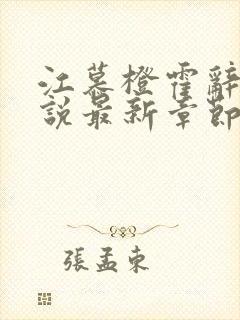 江慕橙霍辭
說最新章節
張孟東